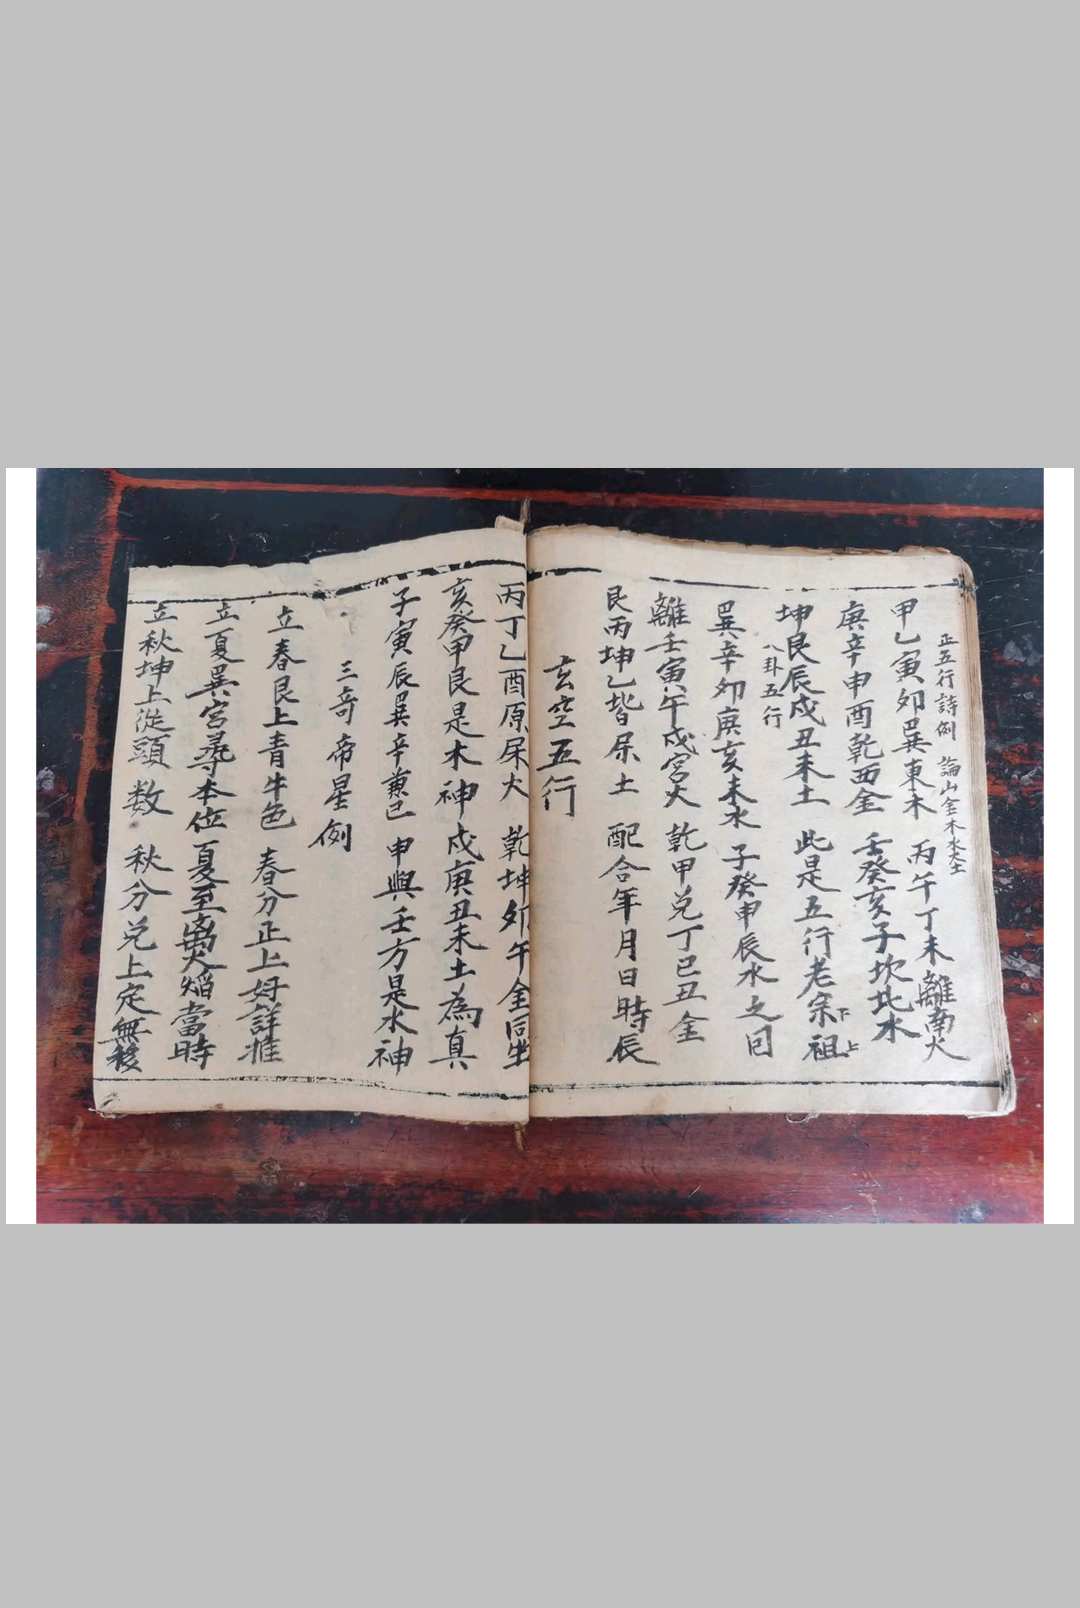 正五行詩例 論山金木水火土
甲乙寅卯巽東木 丙午丁未離南火
庚辛申酉乾西金 壬癸亥子坎北水
坤艮辰戌丑未土 此是五行老宗祖 下上
八卦五行
巽辛卯庚亥未水 子癸申辰水之囬
離壬寅午戌宮火 乾甲兌丁巳丑金
艮丙坤乙皆屎土 配合年月日時辰
玄空五行
丙丁乙酉原屎火 乾坤卯午金同坐
亥癸甲艮是木神 戌庚丑未土為真
子寅辰巽辛兼巳 申與壬方是水神
三奇帝星例
立春艮上青牛色 春分正上好詳推
立夏巽宮尋本位 夏至离火焰當時
立秋坤上從頭数 秋分兑上定無移